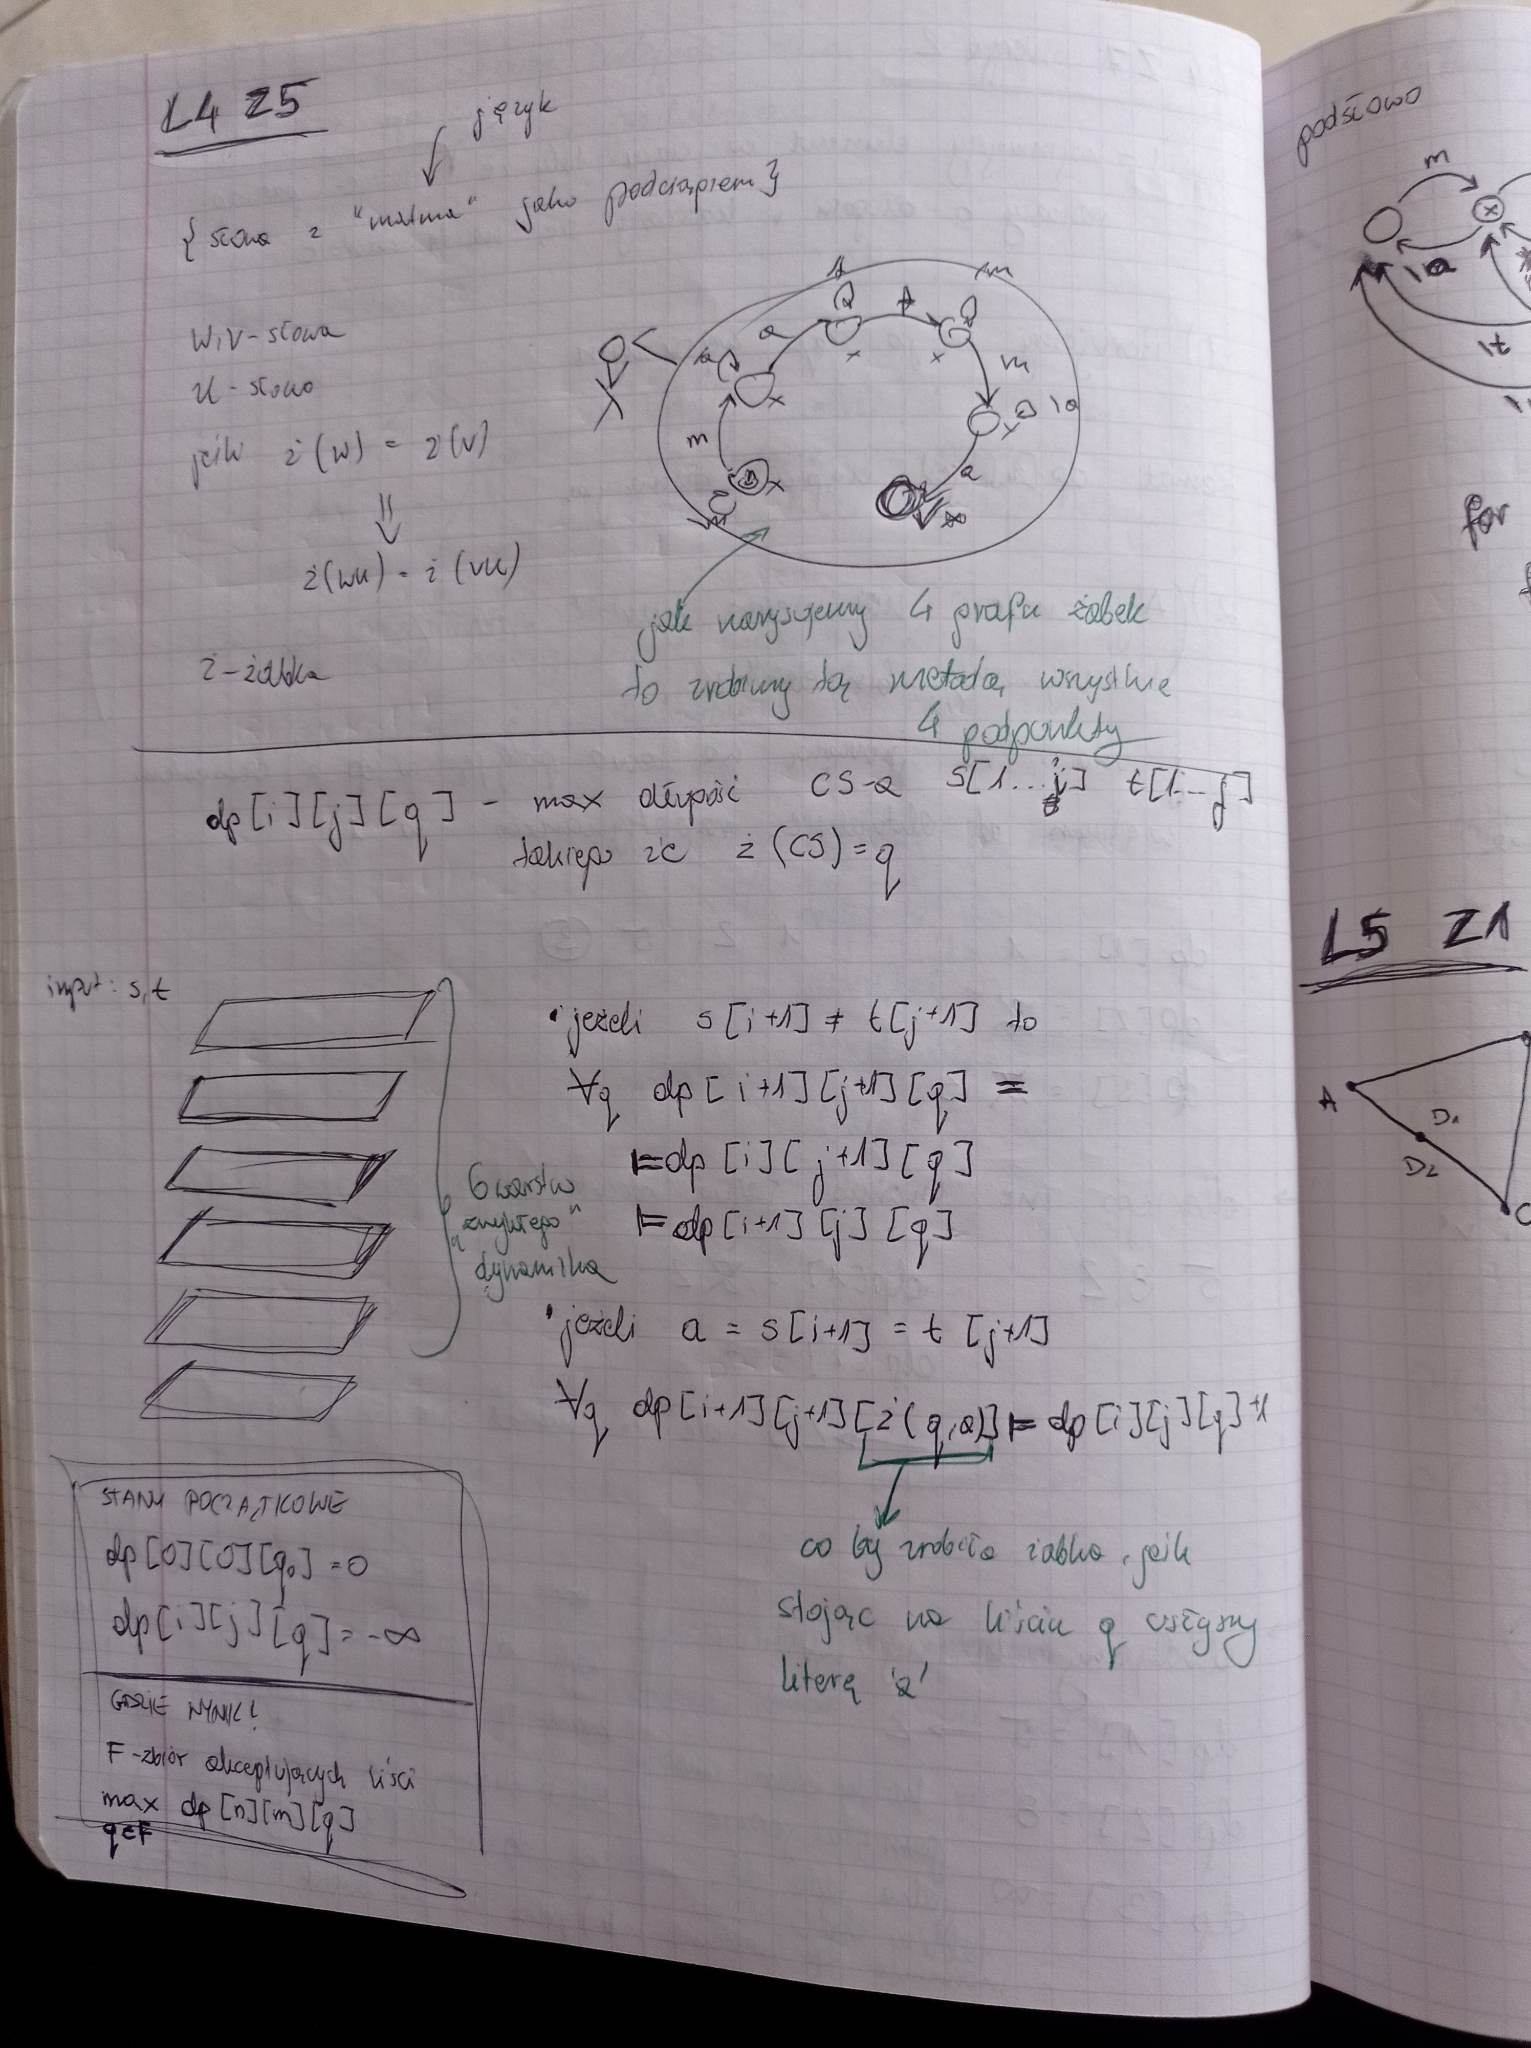 L4 Z5
język
{ słowa z "matma" jako podciągiem }
w,v - słowa
u - słowo
jeśli ż(w) = ż(v)
ż(wu) = ż(vu)
ż - żabka
m
a
t
m
a
jak narysujemy 4 grafy żabek
to zrobimy tą metodą wszystkie
4 podpunkty
dp[i][j][q] - max długość CS-a s[1...i] t[1...j]
takiego że ż(CS) = q
input: s, t
6 warstw
"zwykłego"
dynamika
• jeżeli s[i+1] ≠ t[j+1] to
∀q dp[i+1][j+1][q] =
= dp[i][j+1][q]
= dp[i+1][j][q]
• jeżeli a = s[i+1] = t[j+1]
∀q dp[i+1][j+1][ż(q,a)] = dp[i][j][q]+1
co by zrobiła żabka, jeśli
stojąc na liściu q usłyszy
literę 'a'
STANY POCZĄTKOWE
dp[0][0][q₀] = 0
dp[i][j][q] = -∞
GDZIE WYNIK?
F - zbiór akceptujących liści
max dp[n][m][q]
q∈F
podsłowo
m
\a
\t
for
L5 Z1
A
D₁
D₂
C